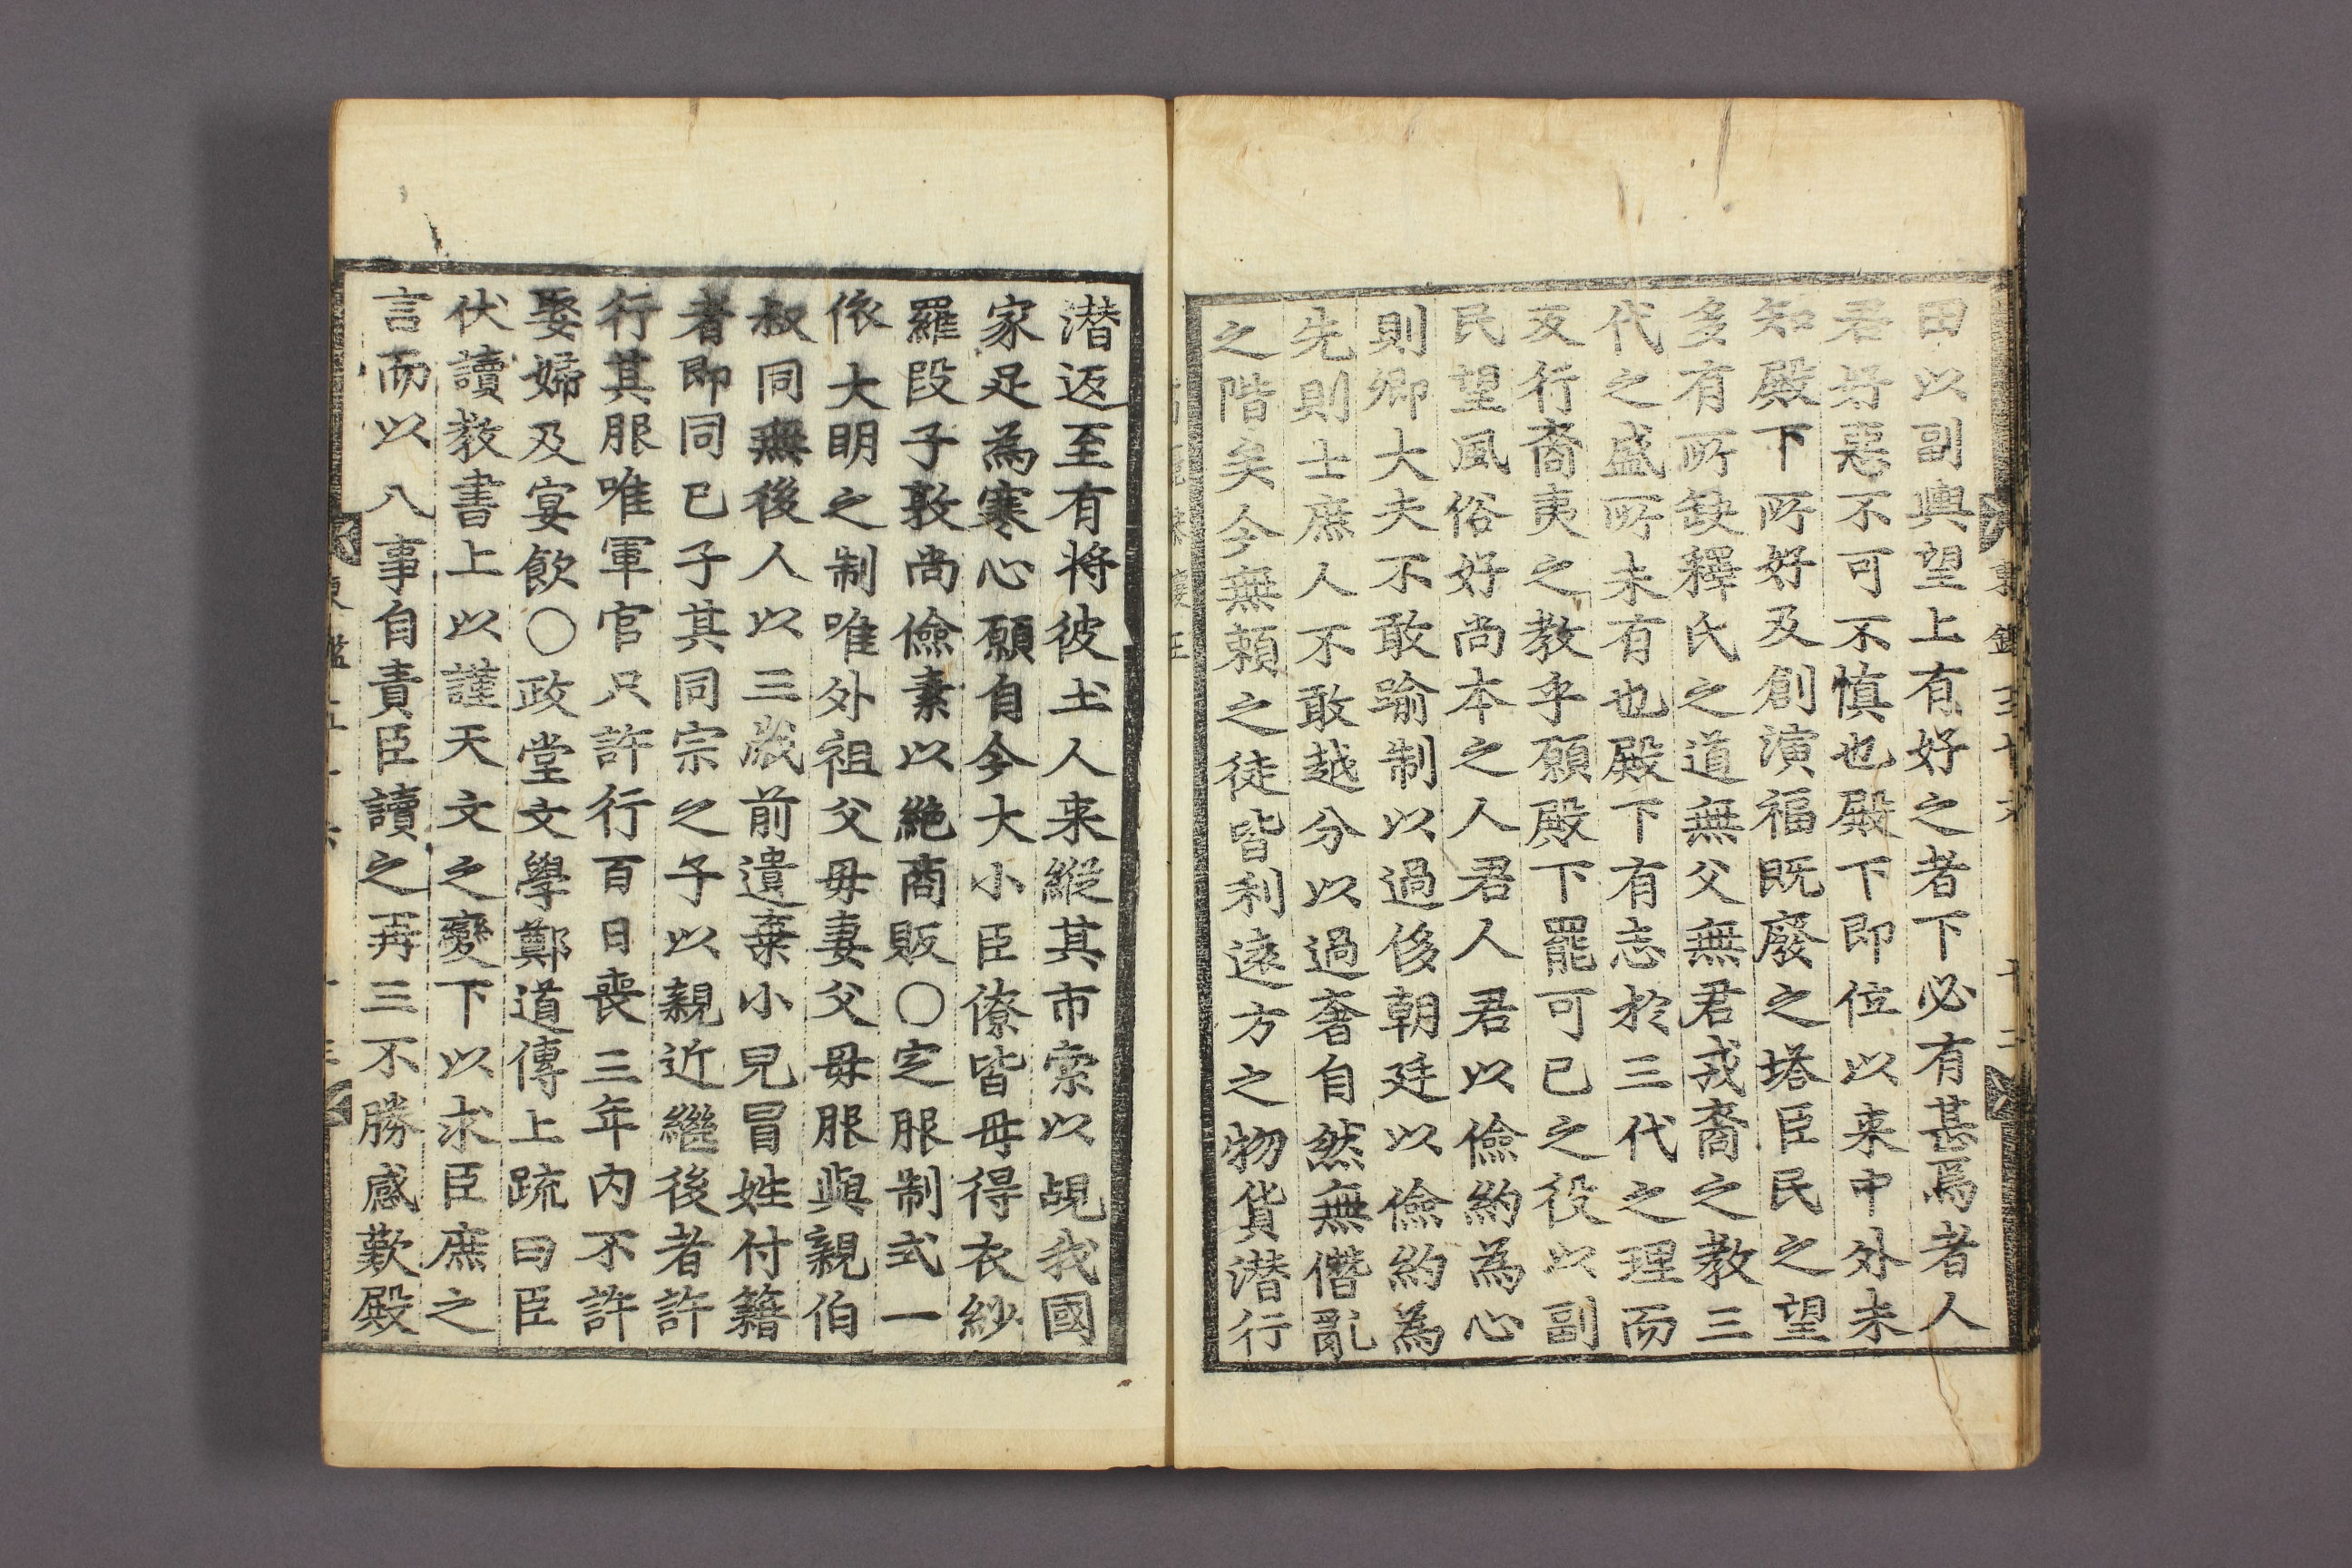 田以副輿望上有好之者下必有甚焉者人
君好惡不可不慎也殿下即位以来中外未
知殿下所好及創演福既廢之塔臣民之望
多有所缺釋氏之道無父無君戎裔之教三
代之盛所未有也殿下有志於三代之理而
反行裔夷之教乎願殿下罷可已之役以副
民望風俗好尚本之人君人君以儉約為心
則卿大夫不敢踰制以過侈朝廷以儉約為
先則士庶人不敢越分以過奢自然無僭亂
之階矣今無賴之徒皆利遠方之物貨潜行
潜返至有将彼土人来縱其市索以覘我國
家足為寒心願自今大小臣僚皆毋得衣紗
羅段子敦尚儉素以絶商販○定服制式一
依大明之制唯外祖父母妻父母服與親伯
叔同無後人以三歲前遺棄小兒冒姓付籍
者即同己子其同宗之子以親近繼後者許
行其服唯軍官只許行百日喪三年內不許
娶婦及宴飮○政堂文學鄭道傳上疏曰臣
伏讀教書上以謹天文之變下以求臣庶之
言而以八事自責臣讀之再三不勝感歎殿